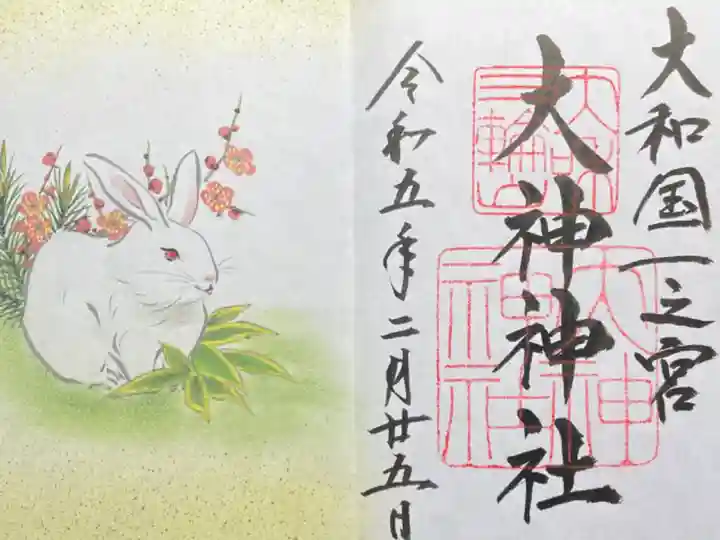 大和国一之宮
大神神社
令和五年二月廿五日
三輪山
大神
神社